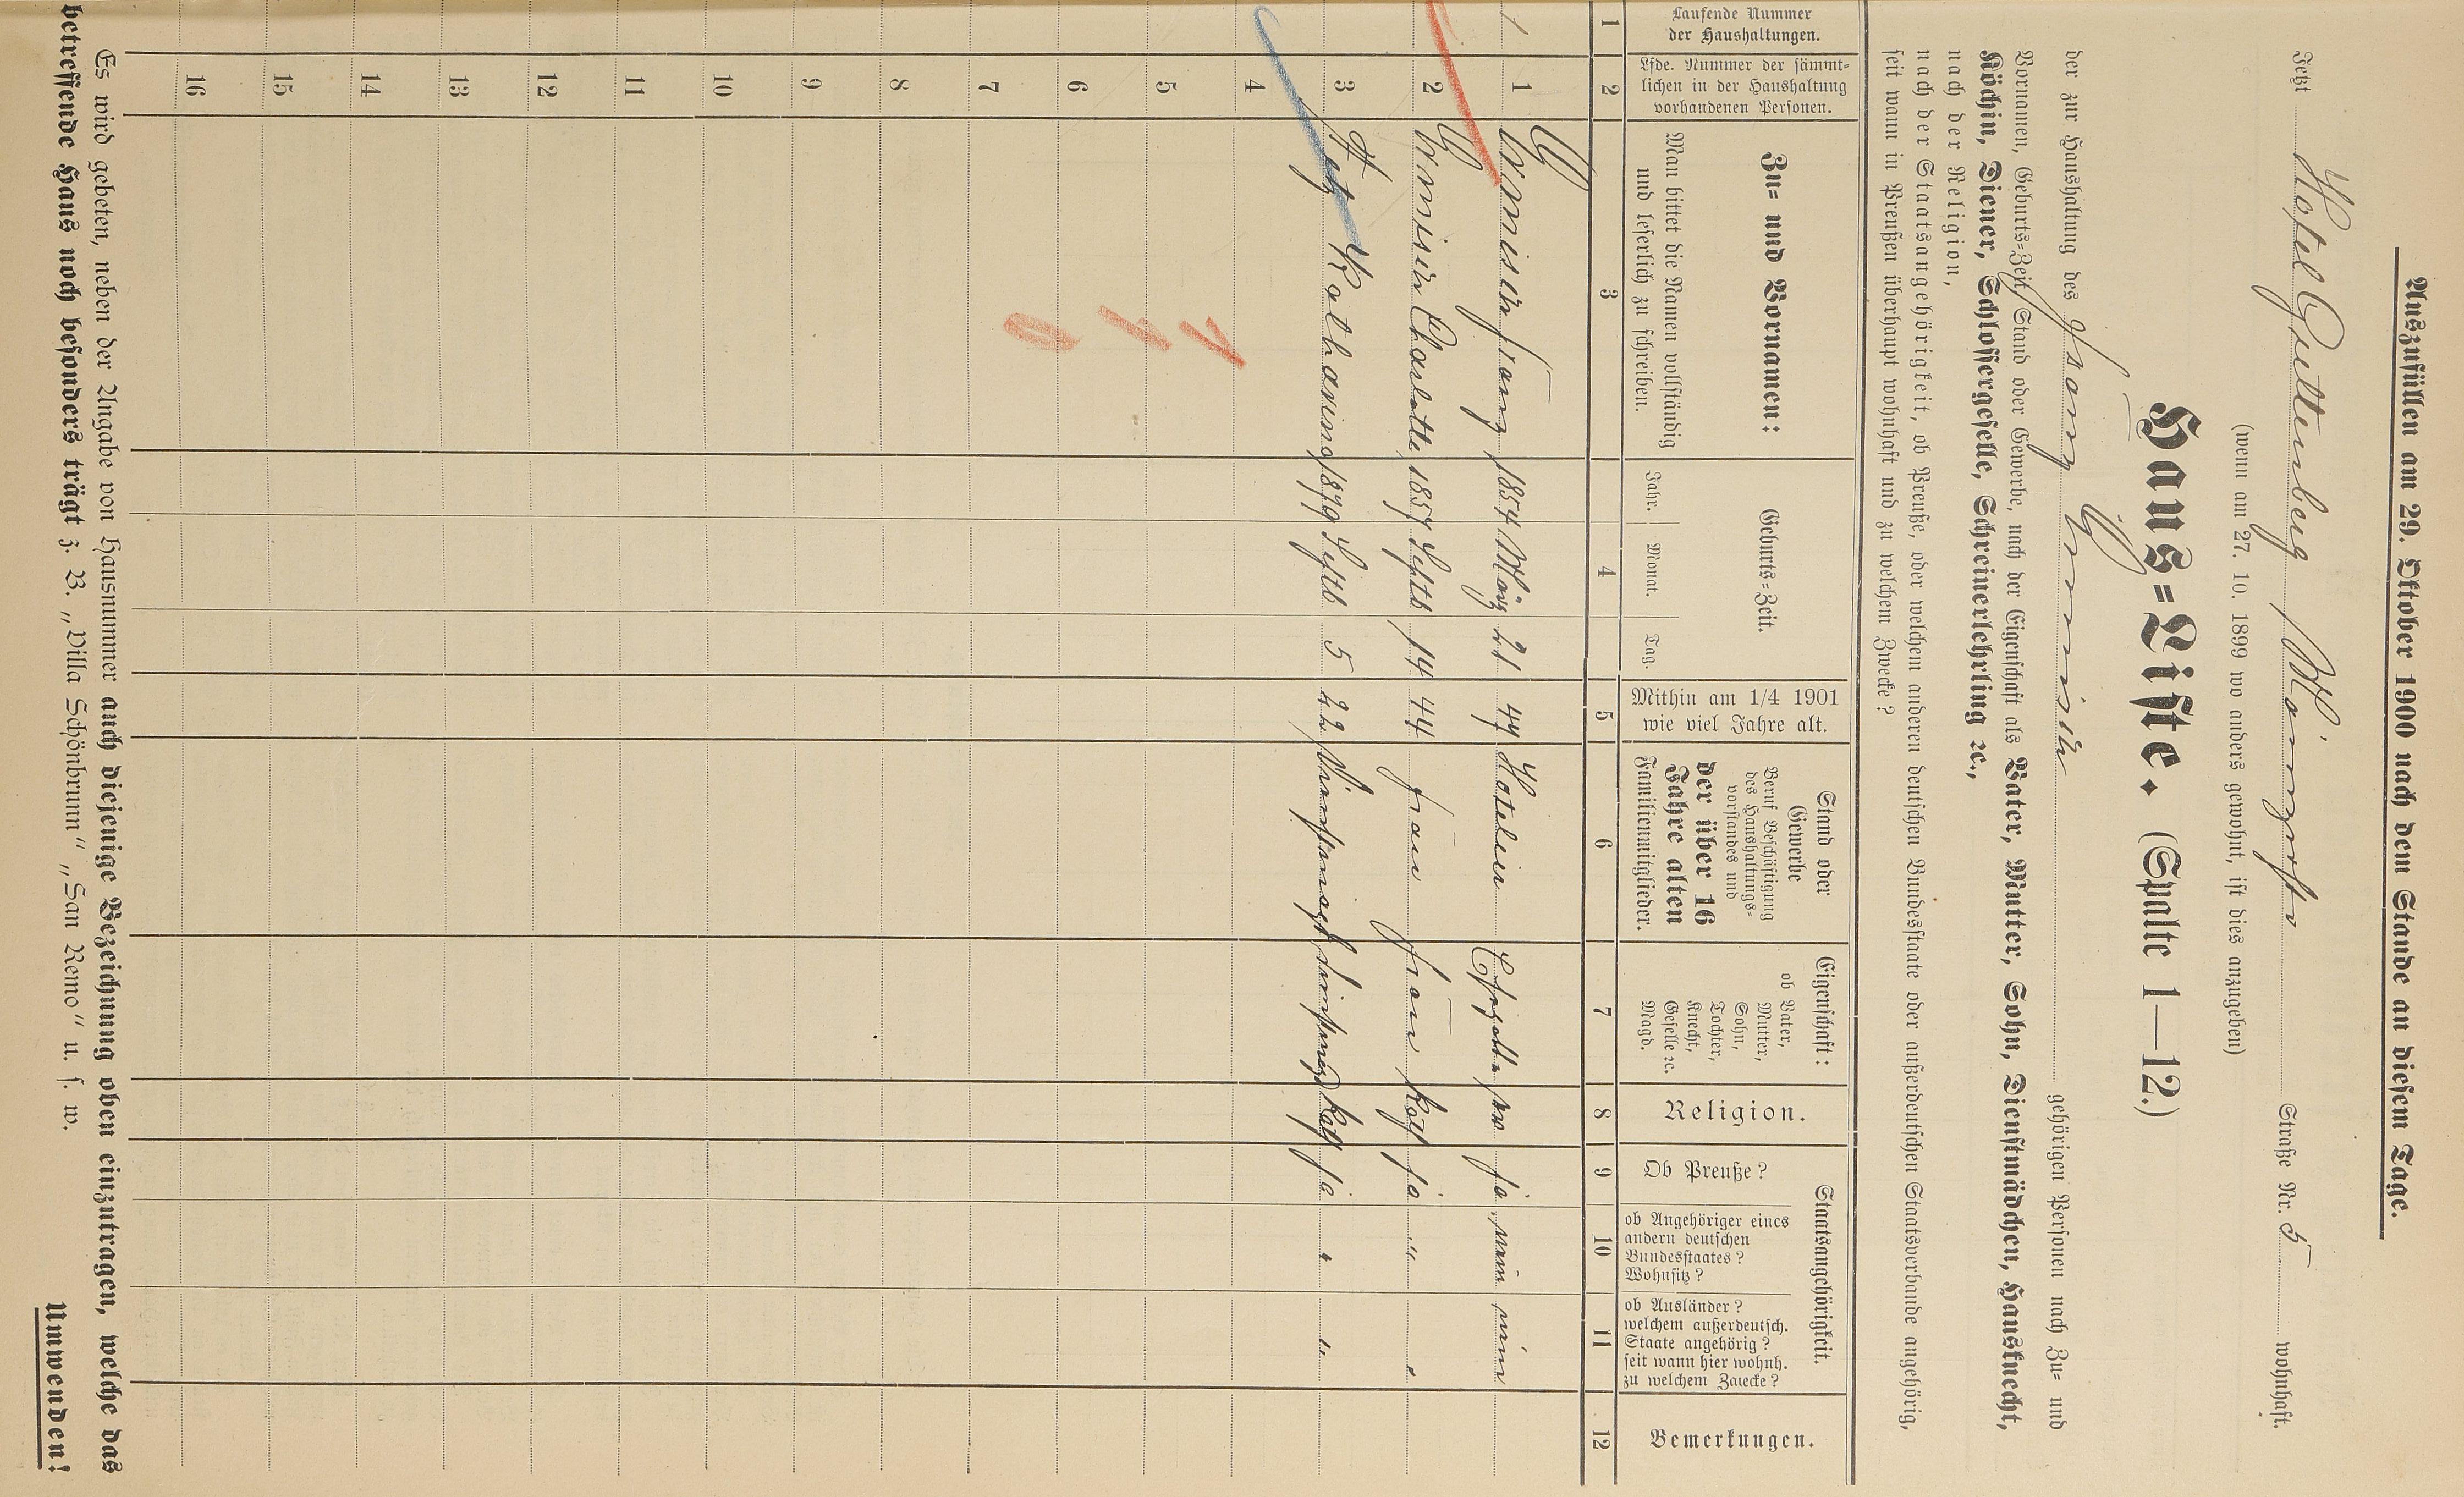 Auszufüllen am 29. Oktober 1900 nach dem Stande an diesem Tage.
Jetzt Hotel Guttenberg Mainzerstr Straße Nr. 5 wohnhaft.
(wenn am 27. 10. 1899 wo anders gewohnt, ist dies anzugeben)
Haus=Liste. (Spalte 1—12.)
der zur Haushaltung des Franz gehörigen Personen nach Zu= und
Vornamen, Geburts=Zeit, Stand oder Gewerbe, nach der Eigenschaft als Vater, Mutter, Sohn, Dienstmädchen, Hausknecht,
Köchin, Diener, Schlossergeselle, Schreinerlehrling ꝛc.,
nach der Religion,
nach der Staatsangehörigkeit, ob Preuße, oder welchem anderen deutschen Bundesstaate oder außerdeutschen Staatsverbande angehörig,
seit wann in Preußen überhaupt wohnhaft und zu welchem Zwecke?
Laufende Nummer
der Haushaltungen.
Lfde. Nummer der sämmt=
lichen in der Haushaltung
vorhandenen Personen.
Zu= und Vornamen:
Man bittet die Namen vollständig
und leserlich zu schreiben.
Geburts=Zeit.
Jahr. Monat. Tag.
Mithin am 1/4 1901
wie viel Jahre alt.
Stand oder
Gewerbe
Beruf Beschäftigung
des Haushaltungs=
vorstandes und
der über 16
Jahre alten
Familienmitglieder.
Eigenschaft:
ob Vater,
Mutter,
Sohn,
Tochter,
Knecht,
Geselle ꝛc.
Magd.
Religion.
Staatsangehörigkeit.
Ob Preuße?
ob Angehöriger eines
andern deutschen
Bundesstaates?
Wohnsitz?
ob Ausländer?
welchem außerdeutsch.
Staate angehörig?
seit wann hier wohnh.
zu welchem Zwecke?
Bemerkungen.
1 2 3 4 5 6 7 8 9 10 11 12
1 1 Franz 1854 März 21 47 Hotelier ja nein nein
2 Charlotte 1857 Septb 14 44 Frau Frau Kath ja " "
3 Katharina 1879 Septb 5 22 Dienstmagd Dienstmagd Kath ja " "
4
5
6
7
8
9
10
11
12
13
14
15
16
1 1 0
Es wird gebeten, neben der Angabe von Hausnummer auch diejenige Bezeichnung oben einzutragen, welche das
betreffende Haus noch besonders trägt z. B. „Villa Schönbrunn“ „San Remo“ u. s. w.
Umwenden!